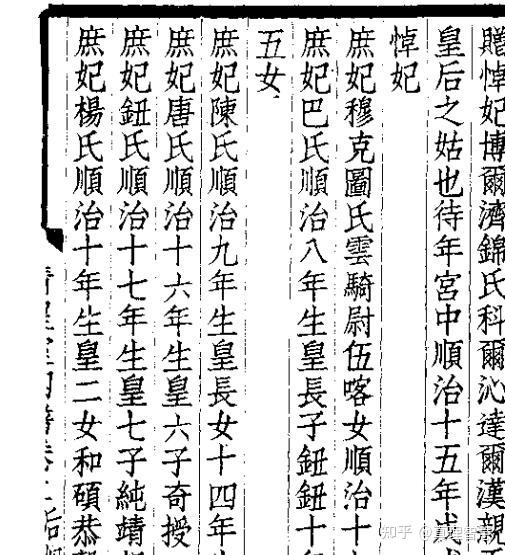 贈悼妃博爾濟錦氏科爾沁達爾漢親
皇后之姑也待年宮中順治十五年
悼妃
庶妃穆克圖氏雲騎尉伍喀女順治十
庶妃巴氏順治八年生皇長子鈕鈕十
五女
庶妃陳氏順治九年生皇長女十四年生
庶妃唐氏順治十六年生皇六子奇授
庶妃鈕氏順治十七年生皇七子純靖
庶妃楊氏順治十年生皇二女和碩恭
知乎